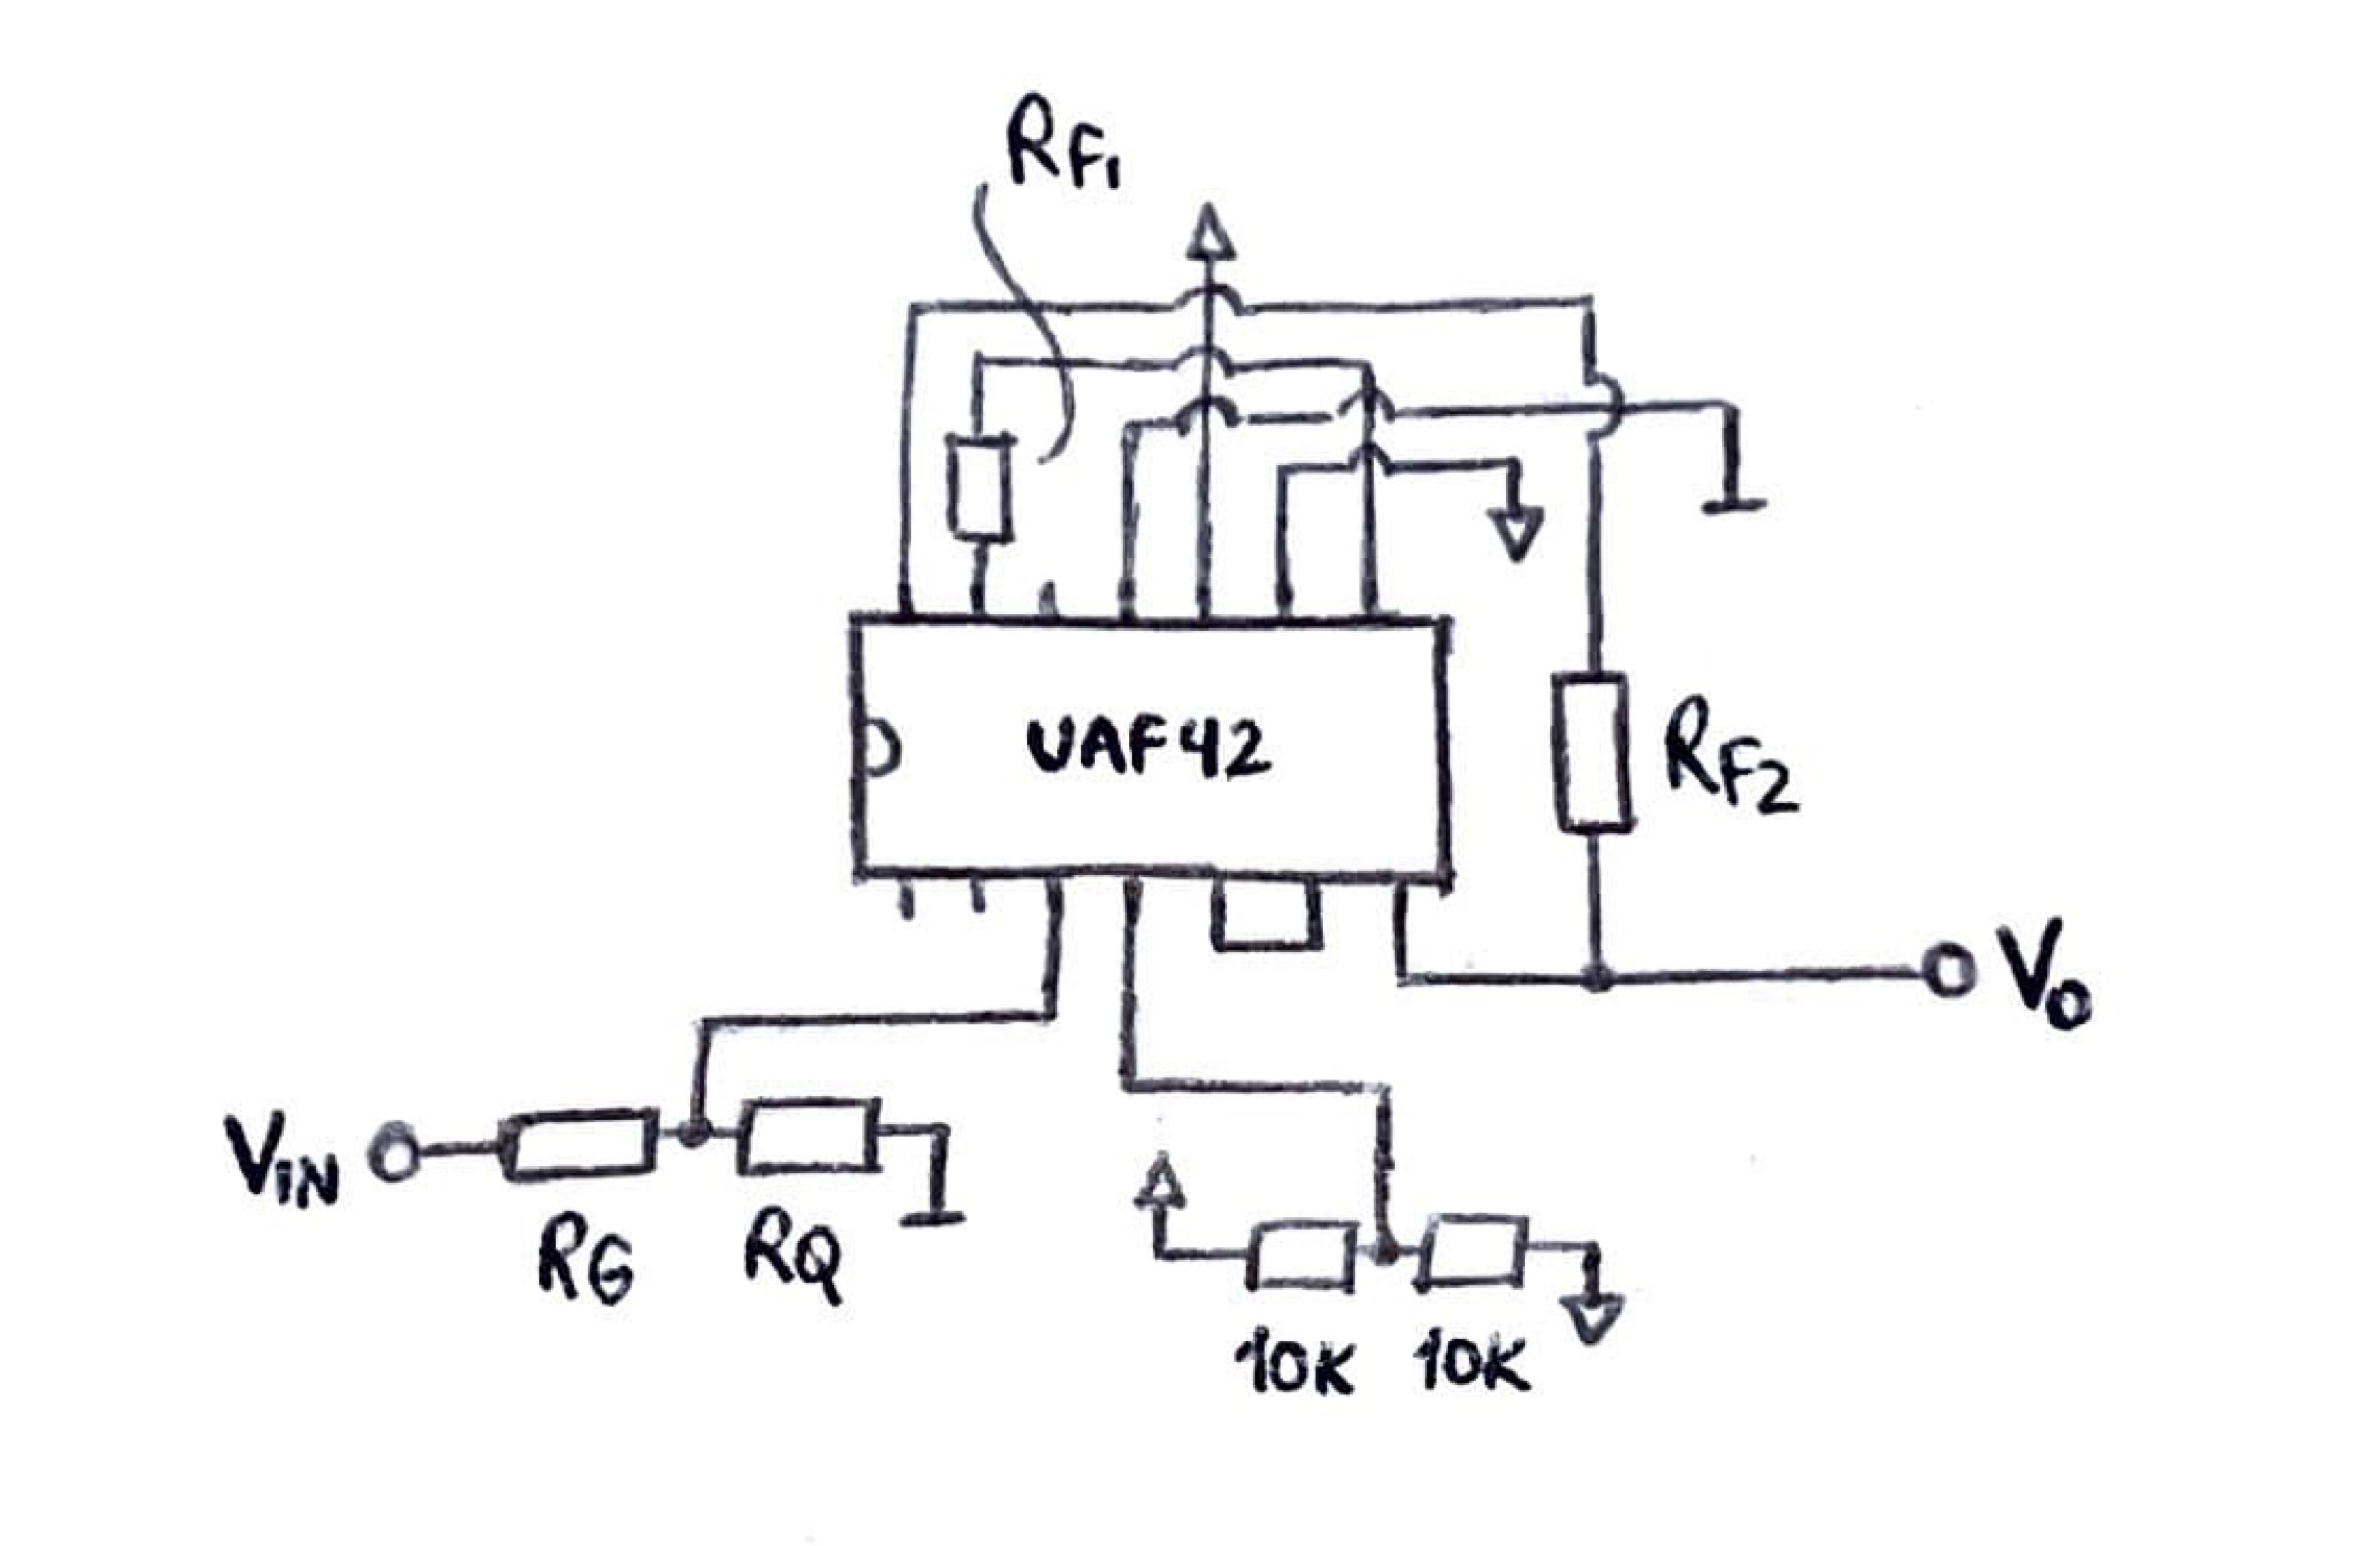 RF1
UAF42
RF2
Vo
VIN
RG RQ
10K 10K